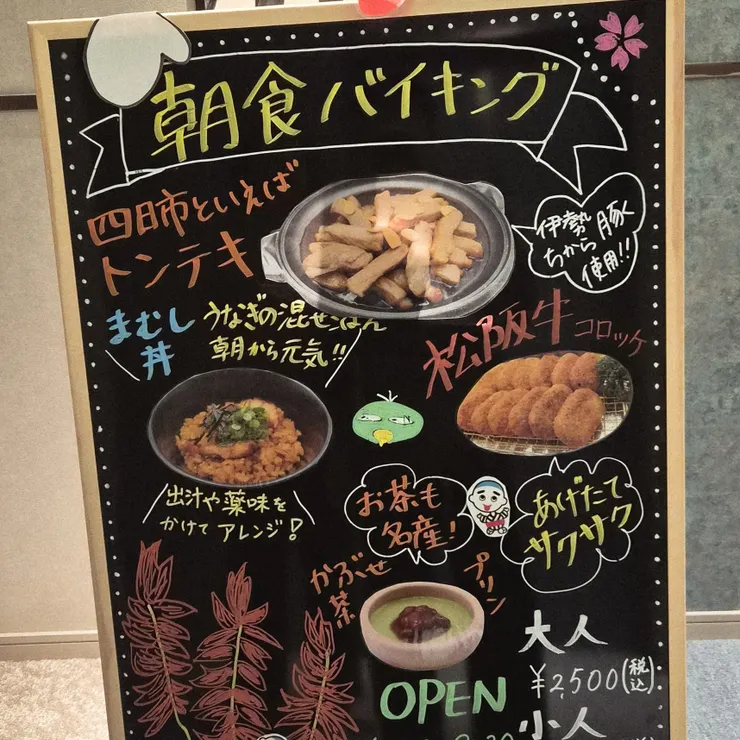 朝食バイキング
四日市といえば
トンテキ
伊勢
ちから豚
使用!!
まむし
丼
うなぎの混ぜごはん
朝から元気!!
松阪牛コロッケ
出汁や薬味を
かけてアレンジ!
お茶も
名産!
あげたて
サクサク
かぶせ
茶
プリン
大人
¥2,500(税込)
OPEN
小人